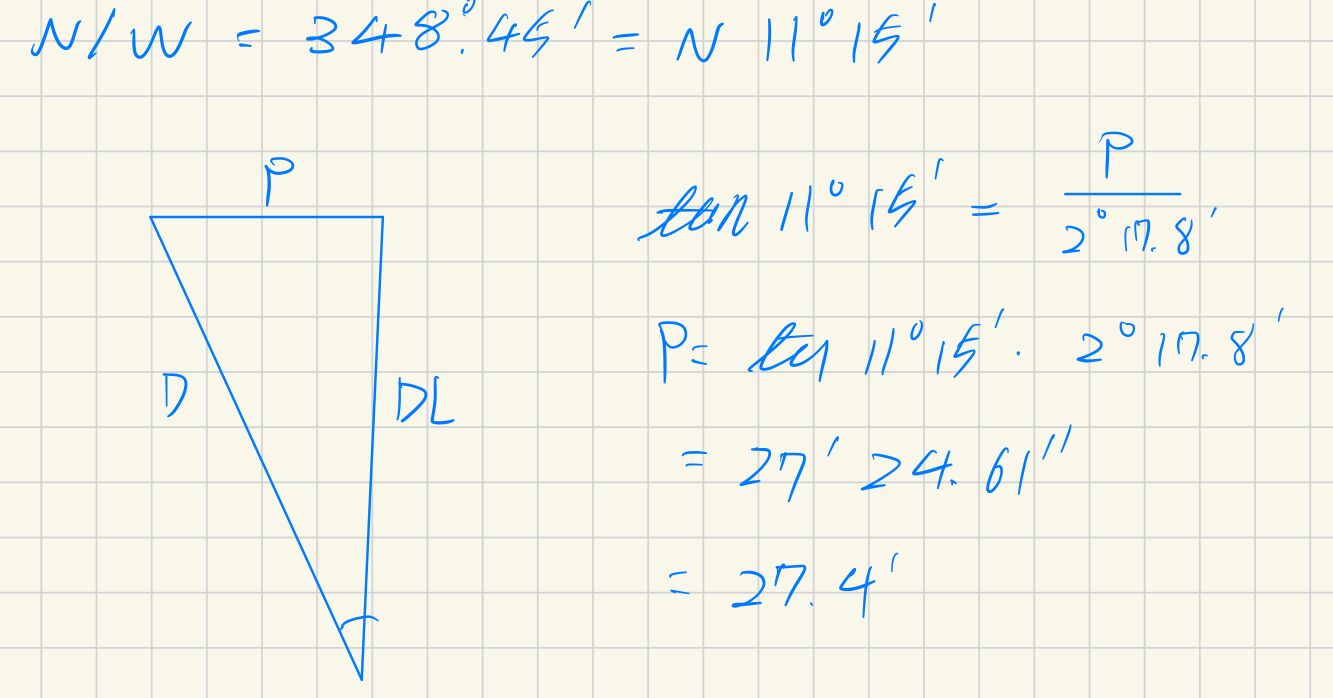 N/W = 348°.45' = N 11°15'
P
tan 11°15' = P / 2°17.8'
P = tan 11°15' · 2°17.8'
D
DL
= 27' 24.61"
= 27.4'